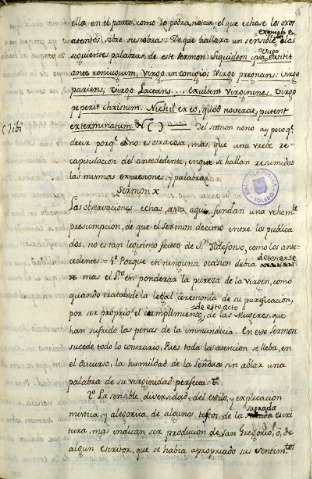 ella en el parto, como lo podrá notar el que echare los ojos
exemplo è
atentos, sobre su obra. De que hallara un sensible ela
siguientes palabras de este Sermon: Siquidem ipsa extitit Virgo
ante coniugium, Virgo in coniugio, Virgo pregnans: Virgo
pariens, Virgo lactans... Exultent Virgines, Virgo
peperit christum. Nichil ex eo, quod noverat, putent
exterminatum. Del sermon nono ay poco q.e
decir porq.e no es otra cosa, más, que una breve re-
capitulacion del antecedente, en que se hallan resumidas
las mismas expresiones y palabras.
Sermon X
Las observaciones echas, asta aquí, fundan una vehemte
presumpcion, de que el Sermon decimo entre los publica
dos, no es tan legitimo feuto de S.n Ildefonso, como los ante-
cedentes. 1.º Porque en ninguna ocasion debia detenerse
mas el S.to en ponderar la pureza de la Virgen, como
quando trataba de la legal ceremonia de su purificacion,
por ser próprio el cumplimiento, de las Mugeres, que
han sufrido las penas de la inmundicia. En este Sermon
sucede todo lo contrario. Pues toda la atencion se lleba, en
el discurso, la humildad de la Señora sin ablar una
palabra de su virginidad perfecta.
2.º La sensible diversidad, del estilo, y explicacion
mistica y alegorica de algunos textos de la sagrada Escri
tura, mas indican ser producion de San Gregorio, ò, de
algun Escritor, que se habia apropiado sus sentim.tos